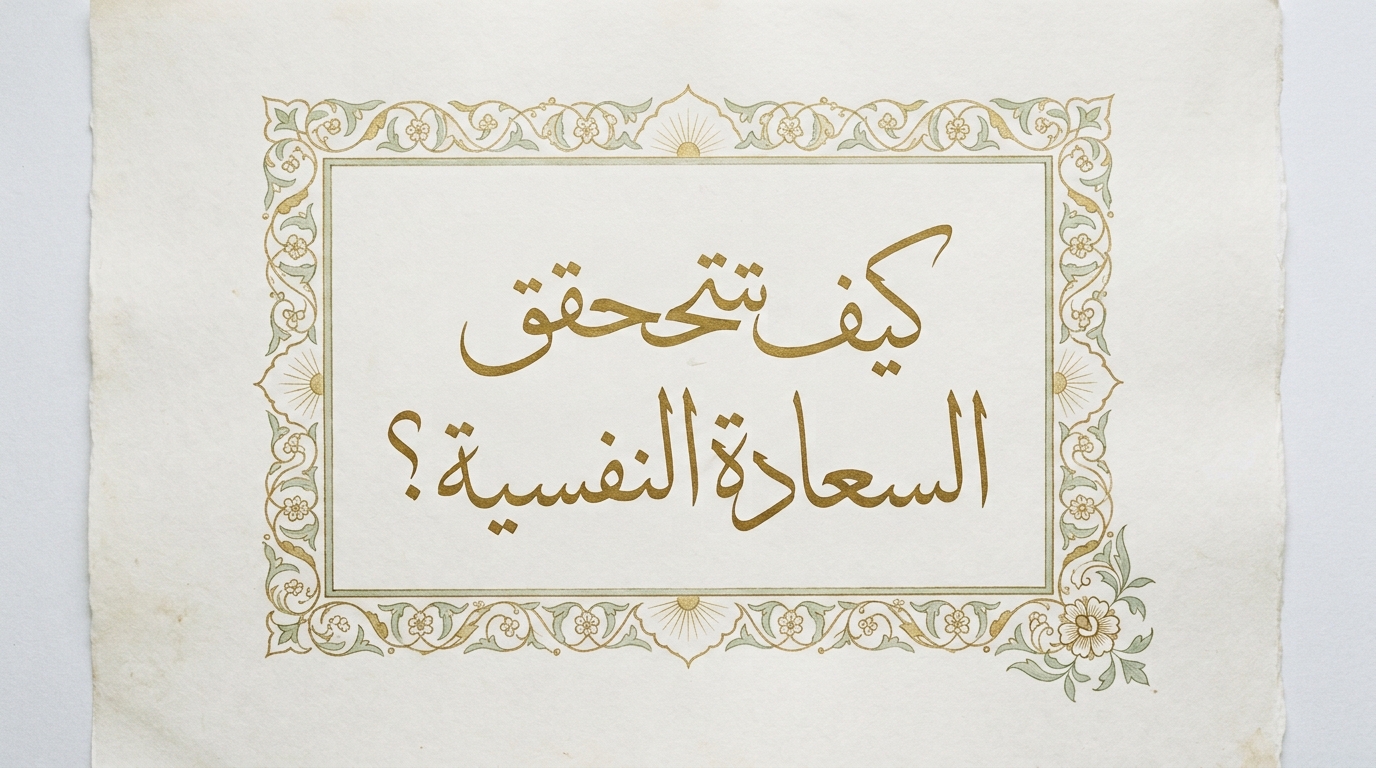 كيف تتححقق
السعادة النفسية؟